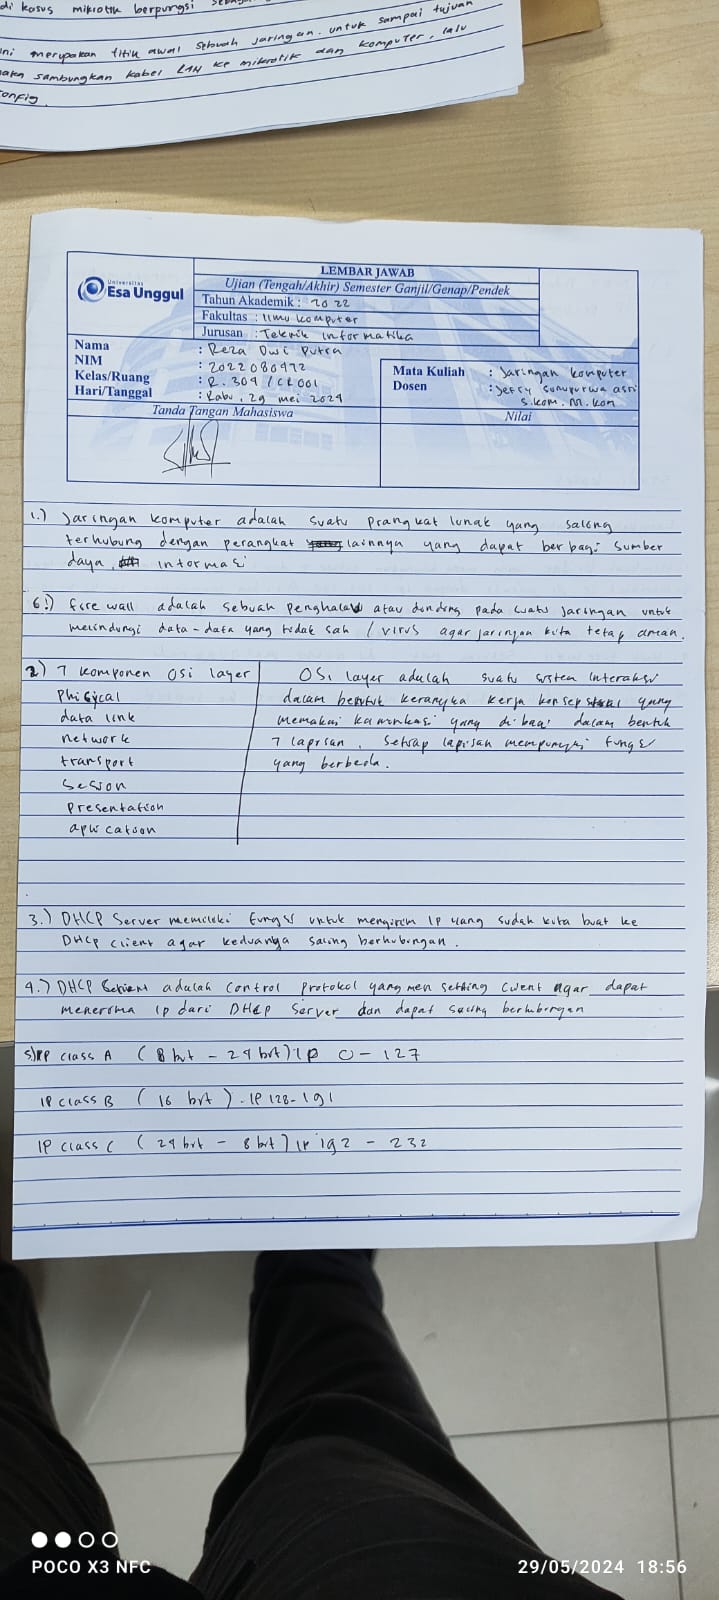 di kasus mikrotik berpungsi
ini merupakan titik awal sebuah jaringan. untuk sampai tujuan
maka sambungkan kabel LAN ke mikrotik dan komputer, lalu
config.
Universitas
Esa Unggul
LEMBAR JAWAB
Ujian (Tengah/Akhir) Semester Ganjil/Genap/Pendek
Tahun Akademik : 2022
Fakultas : Ilmu komputer
Jurusan : Teknik informatika
Nama : Reza Dwi Putra
NIM : 2022080472
Kelas/Ruang : R. 304 / CR001
Hari/Tanggal : Rabu, 29 mei 2024
Mata Kuliah : Jaringan komputer
Dosen : Jefry Sunupurwa asri
S.kom. M.kom
Tanda Tangan Mahasiswa
Nilai
1.) Jaringan komputer adalah suatu prangkat lunak yang saling
terhubung dengan perangkat lainnya yang dapat berbagi sumber
daya, informasi
6.) fire wall adalah sebuah penghalau atau dinding pada suatu jaringan untuk
melindungi data-data yang tidak sah / virus agar jaringan kita tetap aman.
2) 7 komponen osi layer
phisycal
data link
network
transport
Sesion
presentation
aplication
OSi layer adalah suatu sistem interaksi
dalam bentuk kerangka kerja konsep yang
memakai kamunkasi yang di bagi dalam bentuk
7 lapisan. Setiap lapisan mempunyai fungsi
yang berbeda.
3.) DHCP Server memiliki fungsi untuk mengirim IP yang sudah kita buat ke
DHCP client agar keduanya saling berhubungan.
4.) DHCP adalah control protokol yang men setting client agar dapat
menerima ip dari DHCP Server dan dapat saling berhubungan
5) IP class A ( 8 bit - 24 bit) IP 0 - 127
IP class B ( 16 bit ) . IP 128 - 191
IP class C ( 24 bit - 8 bit ) IP 192 - 232
POCO X3 NFC
29/05/2024 18:56